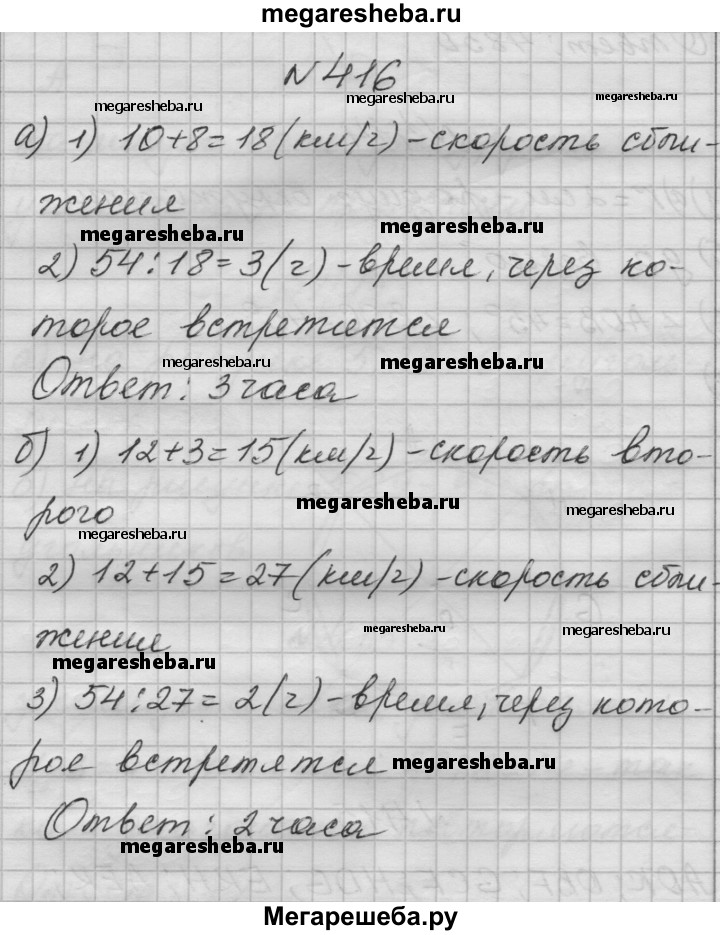 megaresheba.ru
№416
megaresheba.ru megaresheba.ru megaresheba.ru
а) 1) 10+8=18(км/г) -скорость сбли-
жения
megaresheba.ru megaresheba.ru
2) 54:18=3(г) -время, через ко-
торое встретятся
megaresheba.ru megaresheba.ru
Ответ: 3 часа
б) 1) 12+3=15(км/г) -скорость вто-
megaresheba.ru megaresheba.ru
рого
megaresheba.ru
2) 12+15=27(км/г) -скорость сбли-
megaresheba.ru megaresheba.ru
жение
megaresheba.ru
3) 54:27=2(г) -время, через кото-
рое встретятся megaresheba.ru
Ответ: 2 часа
megaresheba.ru
Мегарешеба.ру